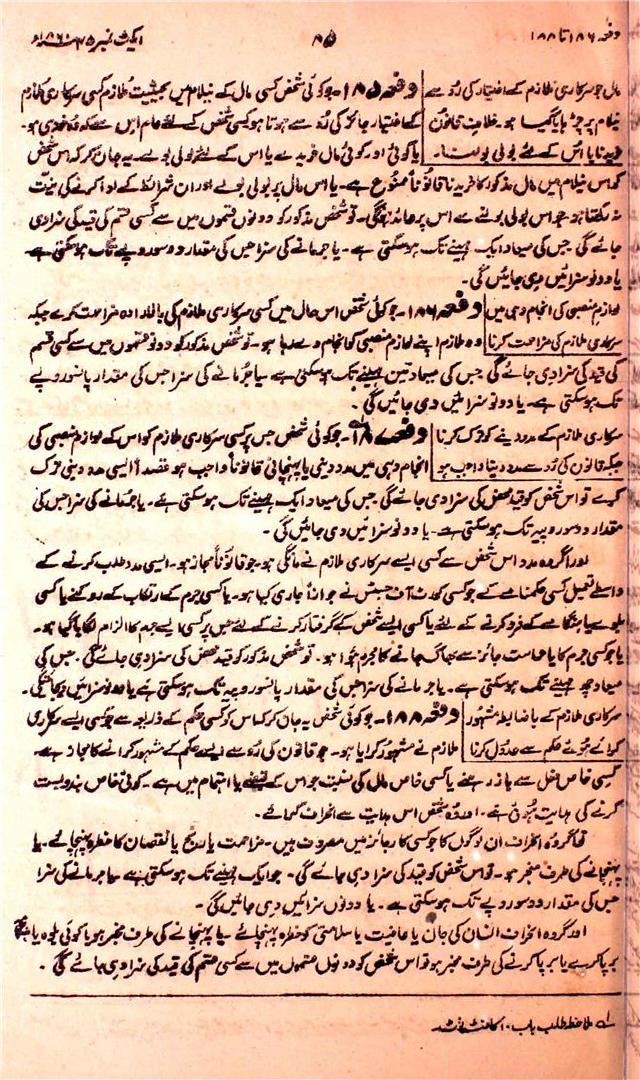 دفعہ ۱۸۶ تا ۱۸۸
۸۵
ایکٹ نمبر ۴۵ ۱۸۶۰ء
مال جو سرکاری ملازم کے اختیار کی رُو سے
نیلام پر چڑہایا گیا ہو۔ خلاف قانون
خریدنا یا اس کے لئے بولی بولنا۔
دفعہ ۱۸۵۔ جو کوئی شخص کسی مال کے نیلام میں بحیثیت ملازم کسی سرکاری ملازم
کے اختیار جائز کی رُو سے ہوتا ہو کسی شخص کے لئے عام اس سے کہ وہ خود ہی ہو۔
یا کوئی اور کوئی مال خریدے یا اس کے لئے بولی بولے۔ یہ جان کر کہ اس شخص
کو اس نیلام میں مال مذکور کا خریدنا قانوناً ممنوع ہے۔ یا اس مال پر بولی بولے اور ان شرائط کے ادا کرنے کی نیت
نہ رکھتا ہو۔ جو اس بولی بولنے سے اس پر عائد ہونگی۔ تو شخص مذکور کو دونوں قسموں میں سے کسی قسم کی قید کی سزا دی
جائے گی جس کی میعاد ایک مہینے تک ہو سکتی ہے۔ یا جرمانے کی سزا جس کی مقدار دو سو روپے تک ہو سکتی ہے
یا دونو سزائیں دی جائیں گی۔
لوازم منصبی کی انجام دہی میں
سرکاری ملازم کی مزاحمت کرنا
دفعہ ۱۸۶۔ جو کوئی شخص اس حال میں کسی سرکاری ملازم کی بالارادہ مزاحمت کرے جبکہ
وہ ملازم اپنے لوازم منصبی کو انجام دے رہا ہو۔ تو شخص مذکور کو دونو قسموں میں سے کسی قسم
کی قید کی سزا دی جائے گی جس کی میعاد تین مہینے تک ہو سکتی ہے یا جرمانے کی سزا جس کی مقدار پانسو روپے
تک ہو سکتی ہے۔ یا دونو سزائیں دی جائیں گی۔
سرکاری ملازم کے مدد دینے کو ترک کرنا
جبکہ قانون کی رُو سے مدد دینا واجب ہو
دفعہ ۱۸۷۔ جو کوئی شخص جس پر کسی سرکاری ملازم کو اس کے لوازم منصبی کی
انجام دہی میں مدد دینی یا پہنچانی قانوناً واجب ہو عمداً ایسی مدد دینی ترک
کرے تو اس شخص کو قید محض کی سزا دی جائے گی۔ جس کی میعاد ایک مہینے تک ہو سکتی ہے۔ یا جرمانے کی سزا جس کی
مقدار دو سو روپیہ تک ہو سکتی ہے۔ یا دونو سزائیں دی جائیں گی۔
اور اگر وہ مدد اس شخص سے کسی ایسے سرکاری ملازم نے مانگی ہو۔ جو قانوناً مجاز ہو۔ ایسی مدد طلب کرنے کے
واسطے تعمیل کسی حکمنامے کے جو کسی کورٹ آف جسٹس نے جوازاً جاری کیا ہو۔ یا کسی جرم کے ارتکاب کے روکنے یا کسی
بلوے یا ہنگامے کے فرو کرنے کے لئے یا کسی ایسے شخص کے گرفتار کرنے کے لئے جس پر کسی ایسے جرم کا الزام لگایا گیا ہو۔
یا جو کسی جرم کا یا حراست جائز سے بھاگ جانے کا مجرم ہوا ہو۔ تو شخص مذکور کو قید محض کی سزا دی جائے گی۔ جس کی
میعاد چھ مہینے تک ہو سکتی ہے۔ یا جرمانے کی سزا جس کی مقدار پانسو روپیہ تک ہو سکتی ہے یا دونو سزائیں دیجائینگی۔
سرکاری ملازم کے باضابطہ مشہور
کرائے ہوئے حکم سے عدول کرنا
دفعہ ۱۸۸۔ جو کوئی شخص یہ جان کر کہ اس کو کسی حکم کے ذریعہ سے جو کسی ایسے سرکاری
ملازم نے مشہور کرایا ہو۔ جو قانون کی رُو سے ایسے حکم کے مشہور کرانے کا مجاز ہے
کسی خاص فعل سے باز رہنے یا کسی خاص مال کی نسبت جو اس کے قبضے یا اہتمام میں ہے۔ کوئی خاص بندوبست
کرنے کی ہدایت ہوئی ہے۔ اور وہ شخص اس ہدایت سے انحراف کرے۔
تو اگر وہ انحراف ان لوگوں کا جو کسی کار جائز میں مصروف ہیں۔ مزاحمت یا رنج یا نقصان کا خطرہ پہنچائے۔ یا
پہنچانے کی طرف منجر ہو۔ تو اس شخص کو قید کی سزا دی جائے گی۔ جو ایک مہینے تک ہو سکتی ہے یا جرمانے کی سزا
جس کی مقدار دو سو روپے تک ہو سکتی ہے۔ یا دونوں سزائیں دی جائیں گی۔
اور اگر وہ انحراف انسان کی جان یا عافیت یا سلامتی کو خطرہ پہنچائے یا پہنچانے کی طرف منجر ہو یا کوئی بلوہ یا ہنگامہ
برپا کرے یا برپا کرنے کی طرف منجر ہو تو اس شخص کو دونوں قسموں میں سے کسی قسم کی قید کی سزا دی جائے گی۔
ملاحظہ طلب باب ۱۰